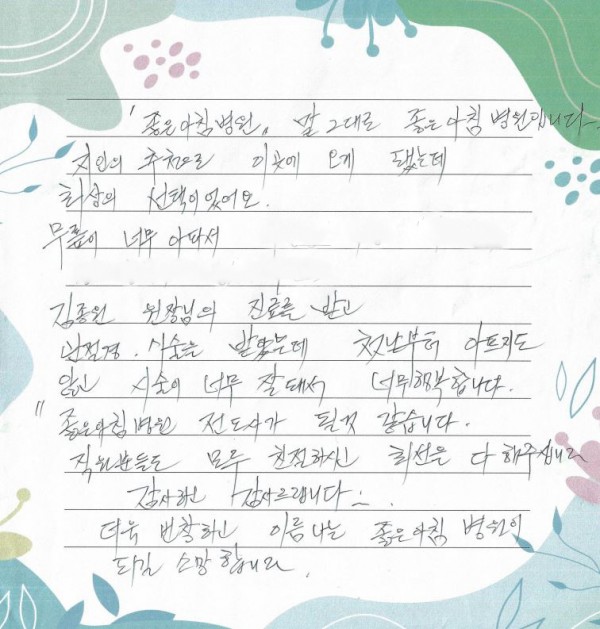 "좋은아침병원" 말 그대로 좋은아침 병원입니다~
지인의 추천으로 이곳에 오게 됐는데
최상의 선택이었어요.
무릎이 너무 아파서
김종원 원장님의 진료를 받고
관절경. 시술을 받았는데 첫날부터 아프지도
않고 시술이 너무 잘돼서 너무행복합니다.
"좋은아침병원 전도사가 될것 같습니다.
직원분들도 모두 친절하시고 최선을 다해주십니다
감사하고 감사드립니다~.
더욱 번창하고 이름나는 좋은아침 병원이
되길 소망합니다.